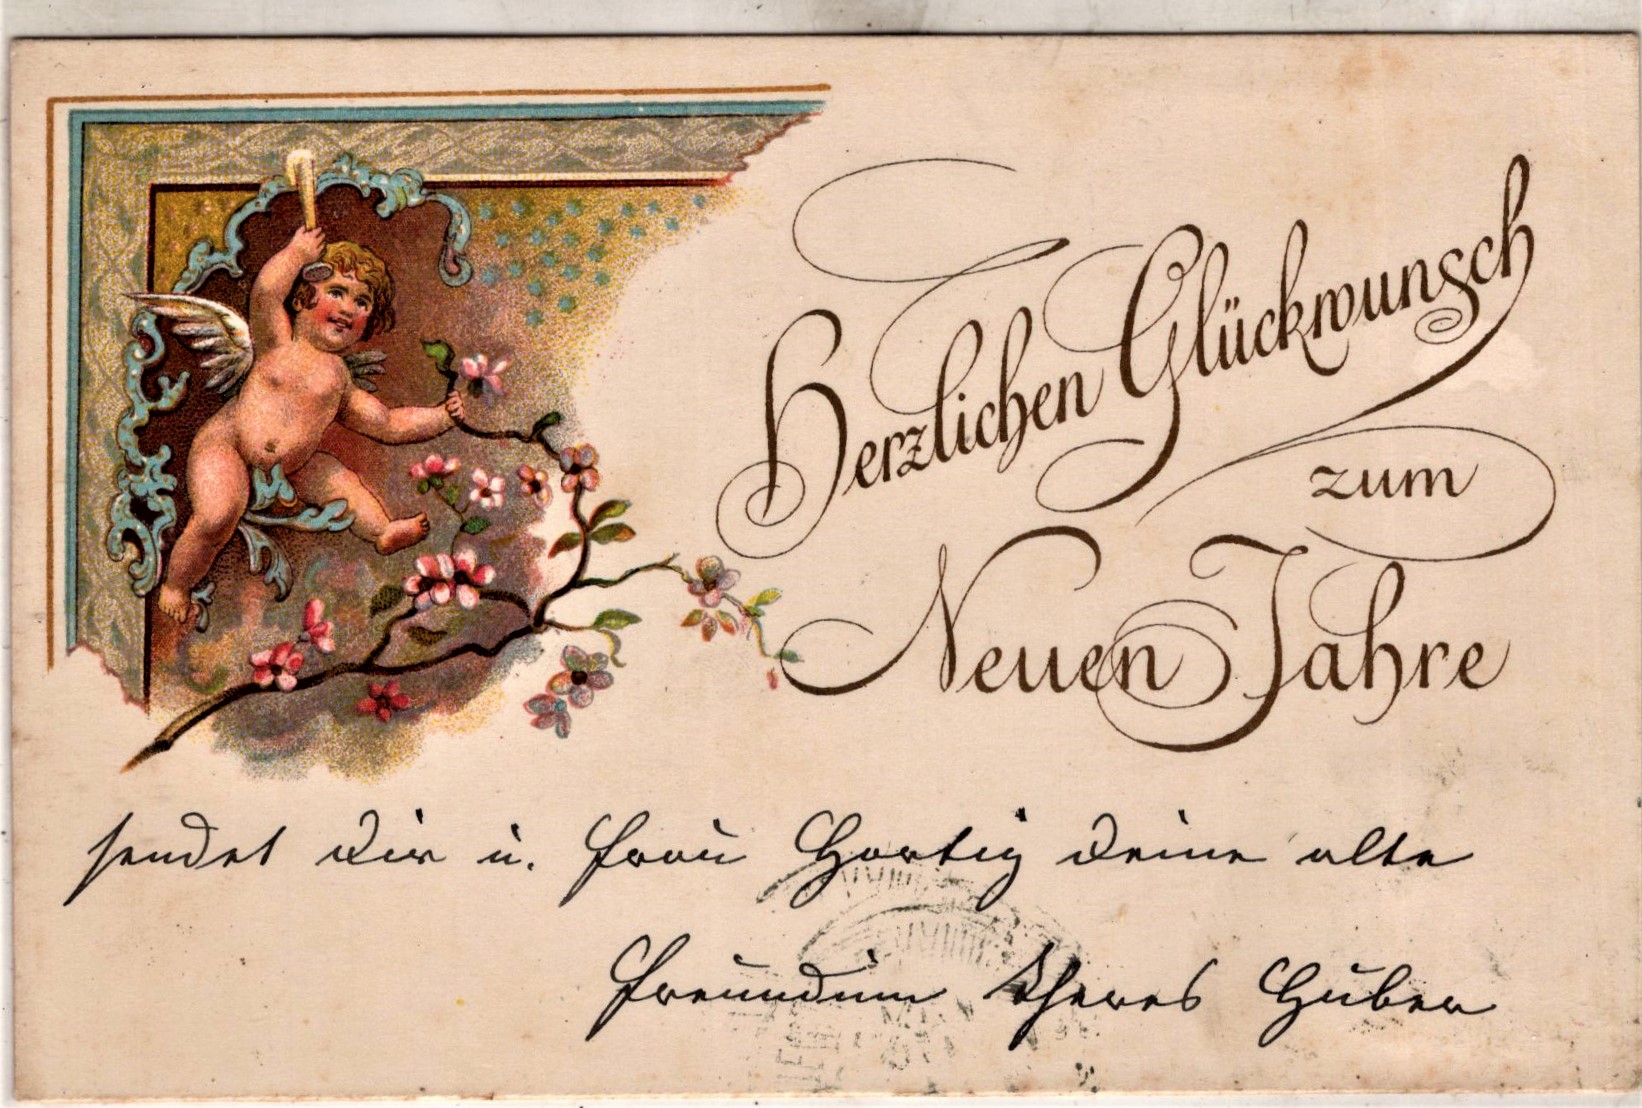 Herzlichen Glückwunsch
zum
Neuen Jahre
sendet Dir u. Frau Hartig Deine alte
Freundin Theres Huber